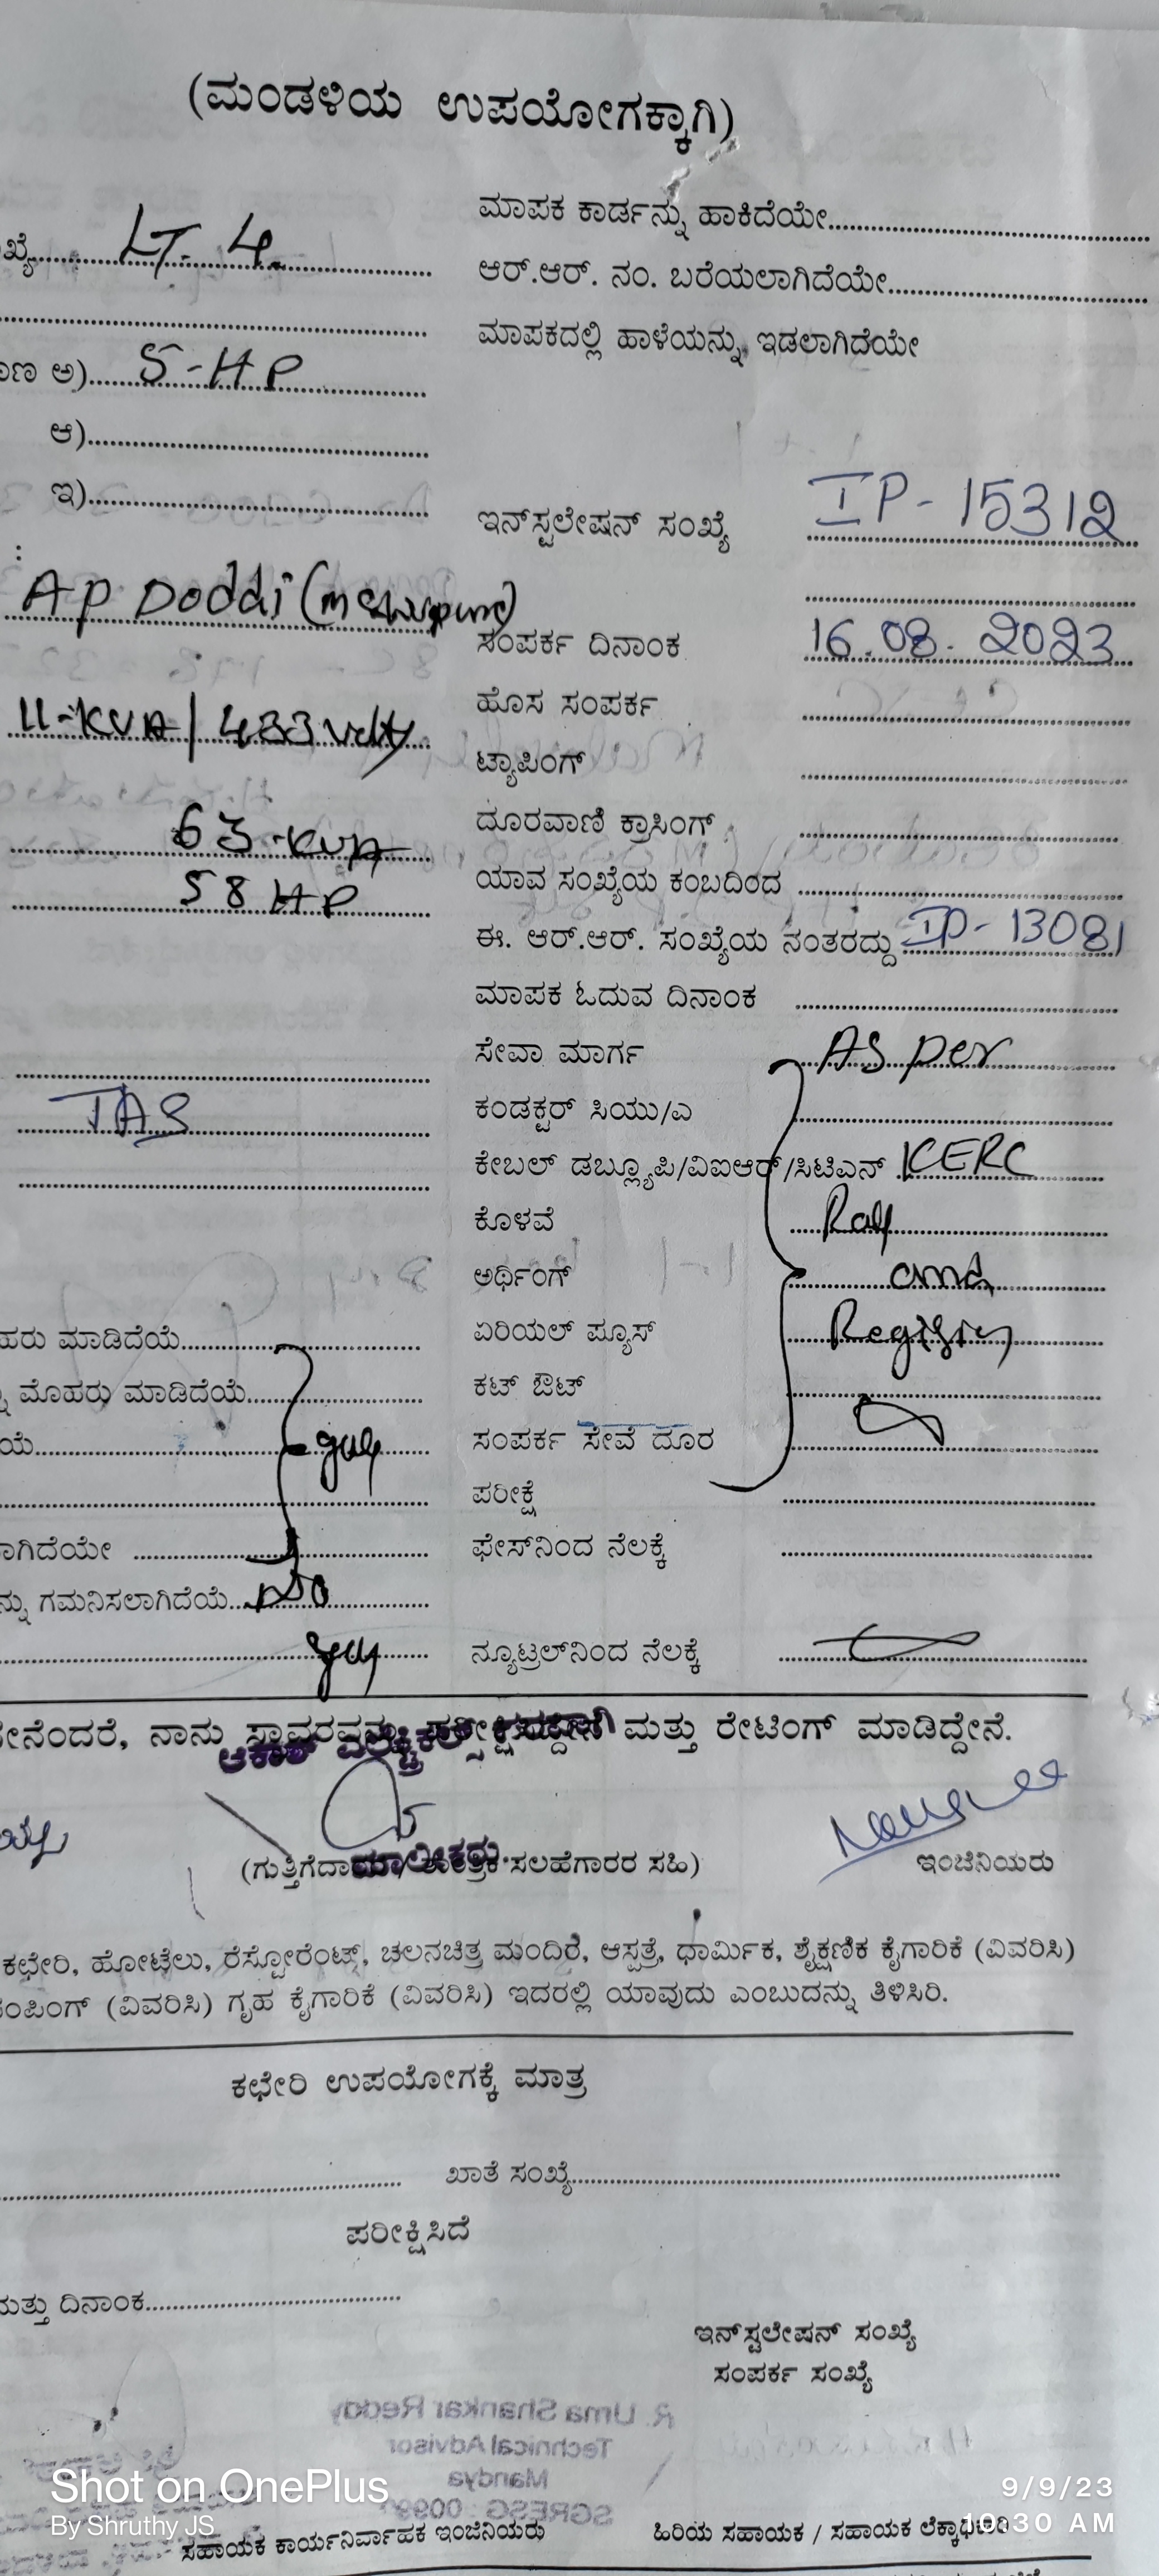 (ಮಂಡಳಿಯ ಉಪಯೋಗಕ್ಕಾಗಿ)
ಖ್ಯೆ LT-4
ಅ) 5-HP
ಆ)
ಇ)
Ap Doddi
11-KVA/433 Volts
63-KVA
58 HP
TAS
ಹರು ಮಾಡಿದೆಯೆ
ಮೊಹರು ಮಾಡಿದೆಯೆ
ಯೆ
ಾಗಿದೆಯೇ
ನ್ನು ಗಮನಿಸಲಾಗಿದೆಯೆ
ಮಾಪಕ ಕಾರ್ಡನ್ನು ಹಾಕಿದೆಯೇ
ಆರ್.ಆರ್. ನಂ. ಬರೆಯಲಾಗಿದೆಯೇ
ಮಾಪಕದಲ್ಲಿ ಹಾಳೆಯನ್ನು ಇಡಲಾಗಿದೆಯೇ
ಇನ್‌ಸ್ಟಲೇಷನ್ ಸಂಖ್ಯೆ IP-15312
ಸಂಪರ್ಕ ದಿನಾಂಕ 16.08.2023
ಹೊಸ ಸಂಪರ್ಕ
ಟ್ಯಾಪಿಂಗ್
ದೂರವಾಣಿ ಕ್ರಾಸಿಂಗ್
ಯಾವ ಸಂಖ್ಯೆಯ ಕಂಬದಿಂದ
ಈ. ಆರ್.ಆರ್. ಸಂಖ್ಯೆಯ ನಂತರದ್ದು IP-13081
ಮಾಪಕ ಓದುವ ದಿನಾಂಕ
ಸೇವಾ ಮಾರ್ಗ As per
ಕಂಡಕ್ಟರ್ ಸಿಯು/ಎ
ಕೇಬಲ್ ಡಬ್ಲ್ಯೂಪಿ/ವಿಐಆರ್/ಸಿಟಿಎನ್ KERC
ಕೊಳವೆ
ಅರ್ಥಿಂಗ್ and
ಏರಿಯಲ್ ಪ್ಯೂಸ್
ಕಟ್ ಔಟ್
ಸಂಪರ್ಕ ಸೇವೆ ದೂರ
ಪರೀಕ್ಷೆ
ಫೇಸ್‌ನಿಂದ ನೆಲಕ್ಕೆ
ನ್ಯೂಟ್ರಲ್‌ನಿಂದ ನೆಲಕ್ಕೆ
ನೇನೆಂದರೆ, ನಾನು ಸ್ಥಾವರವನ್ನು ಪರೀಕ್ಷಿಸಿದ್ದೇನೆ ಮತ್ತು ರೇಟಿಂಗ್ ಮಾಡಿದ್ದೇನೆ.
ಮಾಲೀಕರು.
(ಗುತ್ತಿಗೆದಾರರ/ತಾಂತ್ರಿಕ ಸಲಹೆಗಾರರ ಸಹಿ) ಇಂಜಿನಿಯರು
ಕಛೇರಿ, ಹೋಟೆಲು, ರೆಸ್ಟೋರೆಂಟ್, ಚಲನಚಿತ್ರ ಮಂದಿರ, ಆಸ್ಪತ್ರೆ, ಧಾರ್ಮಿಕ, ಶೈಕ್ಷಣಿಕ ಕೈಗಾರಿಕೆ (ವಿವರಿಸಿ)
ಂಪಿಂಗ್ (ವಿವರಿಸಿ) ಗೃಹ ಕೈಗಾರಿಕೆ (ವಿವರಿಸಿ) ಇದರಲ್ಲಿ ಯಾವುದು ಎಂಬುದನ್ನು ತಿಳಿಸಿರಿ.
ಕಛೇರಿ ಉಪಯೋಗಕ್ಕೆ ಮಾತ್ರ
ಖಾತೆ ಸಂಖ್ಯೆ
ಪರೀಕ್ಷಿಸಿದೆ
ಮತ್ತು ದಿನಾಂಕ
ಇನ್‌ಸ್ಟಲೇಷನ್ ಸಂಖ್ಯೆ
ಸಂಪರ್ಕ ಸಂಖ್ಯೆ
R. Uma Shankar Reddy
Technical Advisor
Mandya
Shot on OnePlus
By Shruthy JS
9/9/23
10:30 AM
ಸಹಾಯಕ ಕಾರ್ಯನಿರ್ವಾಹಕ ಇಂಜಿನಿಯರು ಹಿರಿಯ ಸಹಾಯಕ / ಸಹಾಯಕ ಲೆಕ್ಕಾಧಿಕಾರಿ